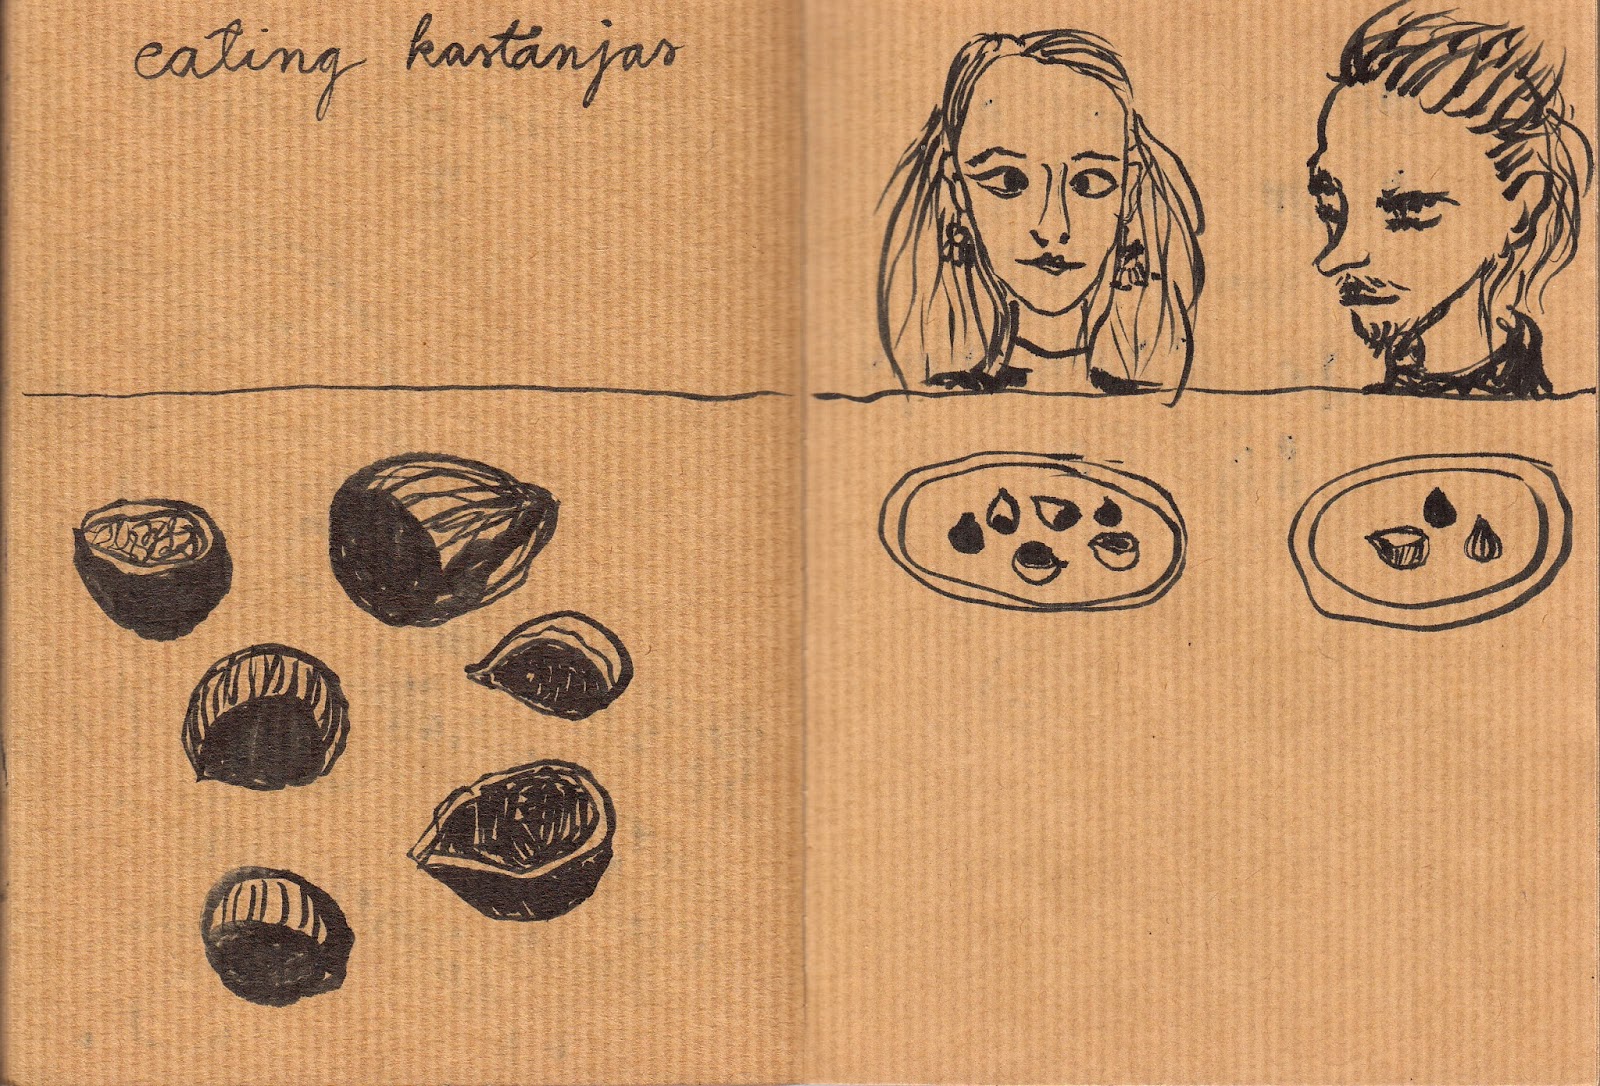 eating kastanjas